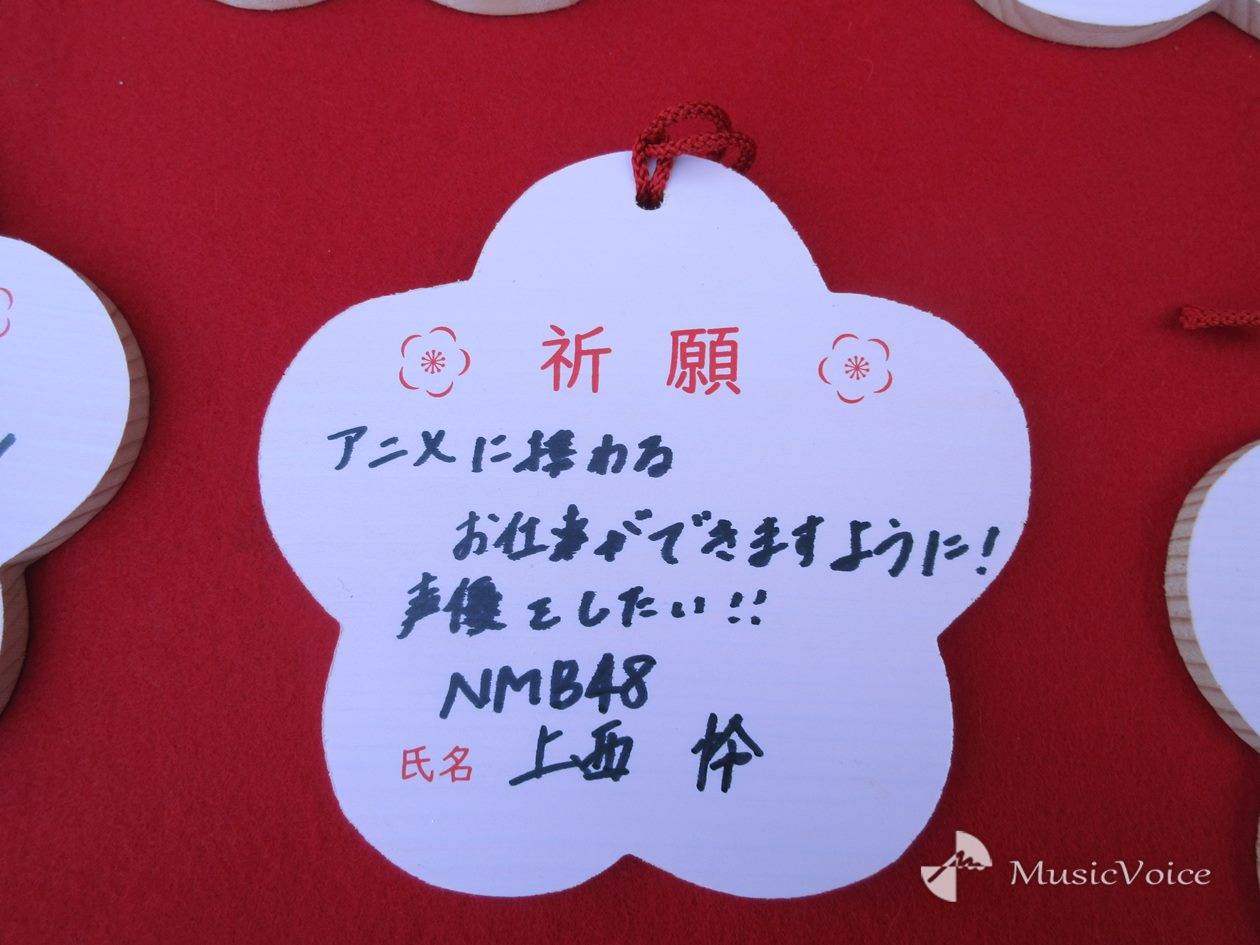 祈願
アニメに携わる
お仕事ができますように!
声優をしたい!!
NMB48
氏名 上西 怜
MusicVoice